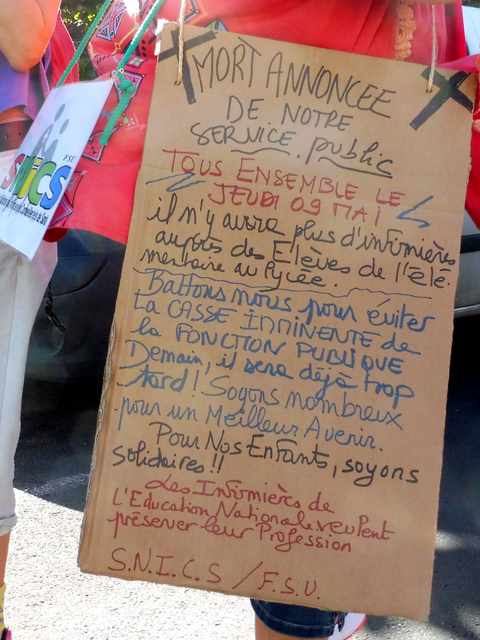 MORT ANNONCEE
DE NOTRE
SERVICE public
TOUS ENSEMBLE LE
JEUDI 09 MAI
il n'y aura plus d'infirmières
auprès des Elèves de l'élé.
mentaire au lycée.
Battons nous pour éviter
la CASSE IMMINENTE de
la FONCTION PUBLIQUE
Demain, il sera déjà trop
tard! Soyons nombreux
pour un Meilleur Avenir.
Pour Nos Enfants, soyons
solidaires!!
Les Infirmières de
L'Education Nationale veulent
préserver leur Profession
S.N.I.C.S / F.S.U.
FSU
snics